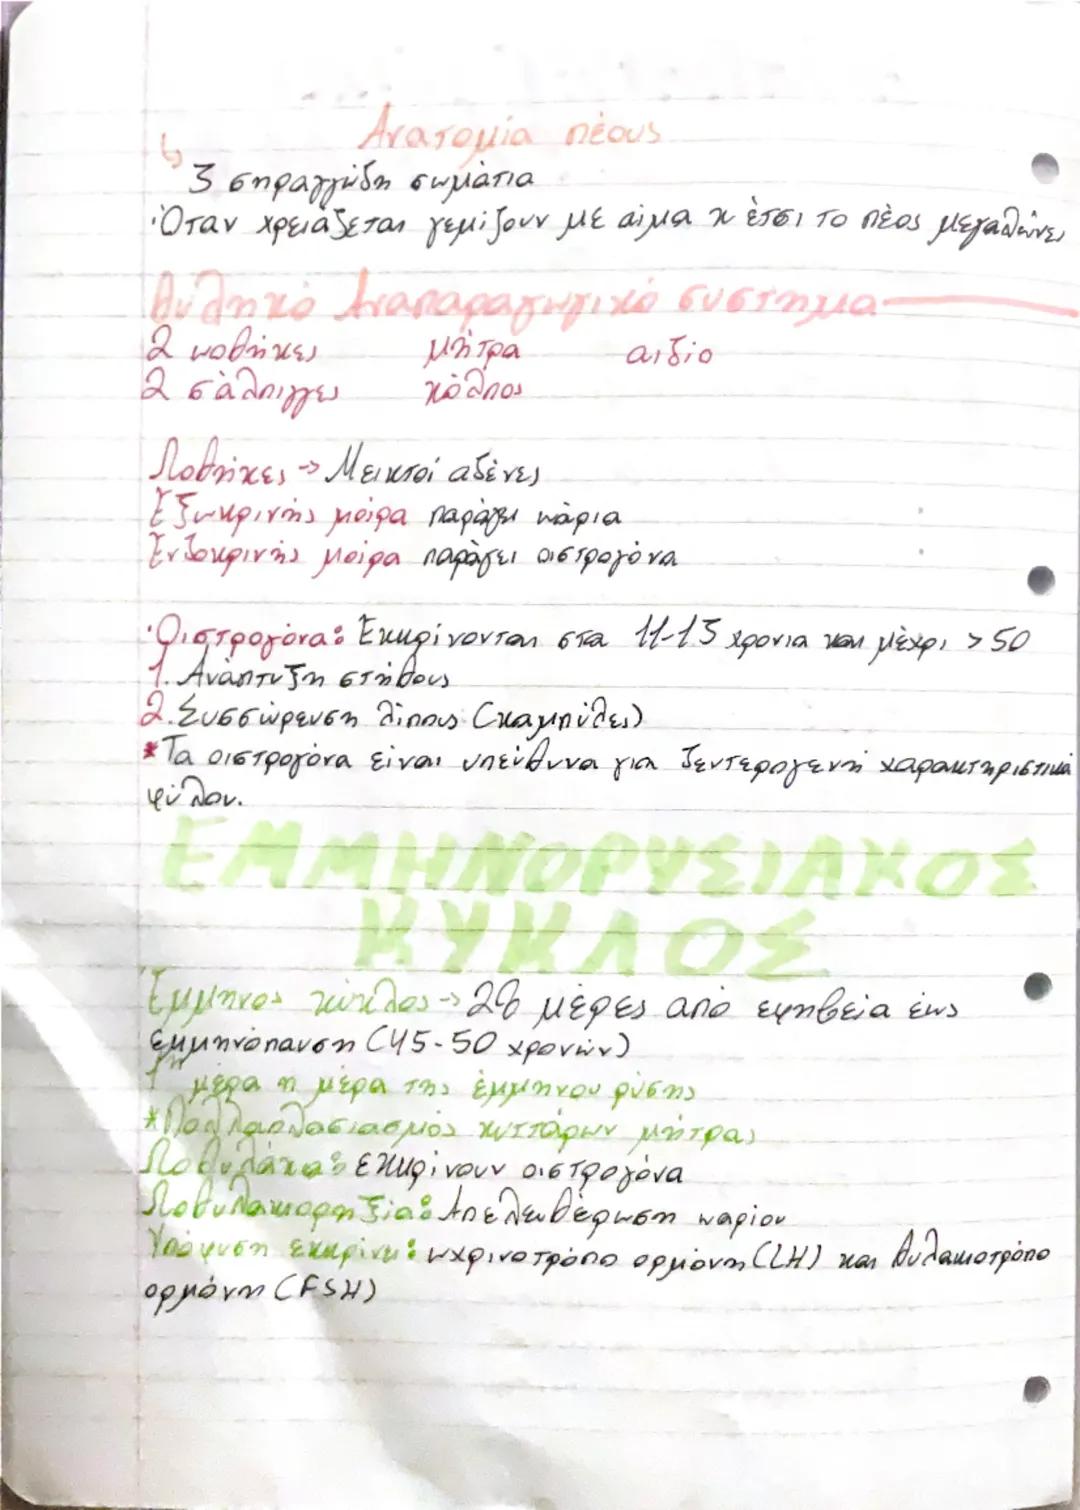 Ανατομία πέους
↳ 3 σηραγγώδη σωμάτια
·Όταν χρειάζεται γεμίζουν με αίμα κ έτσι το πέος μεγαλώνει
Θυληκό Αναπαραγωγικό συστημα
2 ωοθήκες μήτρα αιδίο
2 σάλπιγγες κόλπος
Ωοθήκες → Μεικτοί αδένες
Εξωκρινής μοίρα παράγει ωάρια
Ενδοκρινής μοίρα παράγει οιστρογόνα
·Οιστρογόνα: Εκκρίνονται στα 11-13 χρονια και μέχρι >50
1. Ανάπτυξη στήθους
2. Συσσώρευση λίπους (καμπύλες)
*Τα οιστρογόνα είναι υπεύθυνα για δευτερογενή χαρακτηριστικά
φύλου.
ΕΜΜΗΝΟΡΥΣΙΑΚΟΣ
ΚΥΚΛΟΣ
Έμμηνος κύκλος → 28 μέρες από εφηβεία έως
εμμηνόπαυση (45-50 χρονών)
1η μέρα η μέρα της έμμηνου ρύσης
*Πολλαπλασιασμός κυττάρων μήτρας
Ωοθυλάκια: εκκρίνουν οιστρογόνα
Ωοθυλακιορηξία: Απελευθέρωση ωαρίου
Υπόφυση εκκρίνει: ωχρινοτρόπο ορμόνη (LH) και θυλακιοτρόπο
ορμόνη (FSH)